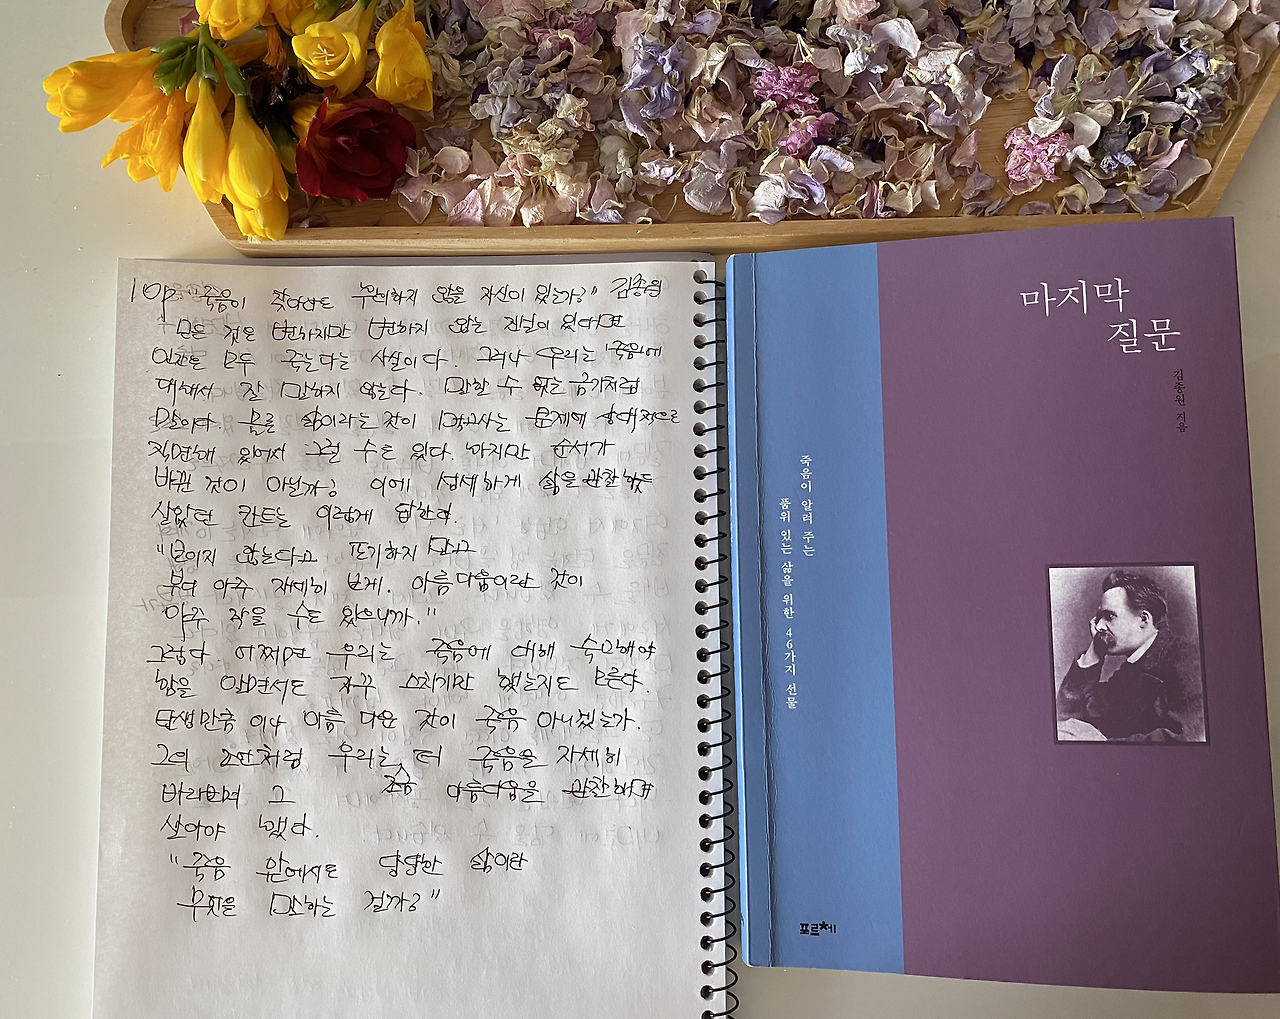 "죽음이 찾아와도 후회하지 않을 자신이 있는가?" 김종원
모든 것은 변하지만 변하지 않는 진실이 있다면
인간은 모두 죽는다는 사실이다. 그러나 우리는 죽음에
대해서 잘 말하지 않는다. 말할 수 없는 금기처럼
말이다. 물론 삶이라는 것이 먹고사는 문제에
있어서 그럴 수도 있다. 하지만 순서가
바뀐 것이 아닐까? 이에 섬세하게 삶을 관찰하듯
살았던 칸트는 이렇게 답한다.
"보이지 않는다고 포기하지 말고
부디 아주 자세히 보게. 아름다움이란 것이
아주 작을 수도 있으니까."
그렇다. 어쩌면 우리는 죽음에 대해 숙고해야
함을 알면서도 자꾸 스치기만 했는지도 모른다.
탄생만큼이나 아름다운 것이 죽음 아니겠는가.
그의 조언처럼 우리는 더 죽음을 자세히
바라보며 그 조금 아름다움을 관찰하며
살아야 했다.
"죽음 앞에서도 당당한 삶이란
무엇을 말하는 걸까?"
마지막
질문
김종원 지음
죽음이 알려 주는
품위 있는 삶을 위한 46가지 선물
포르체